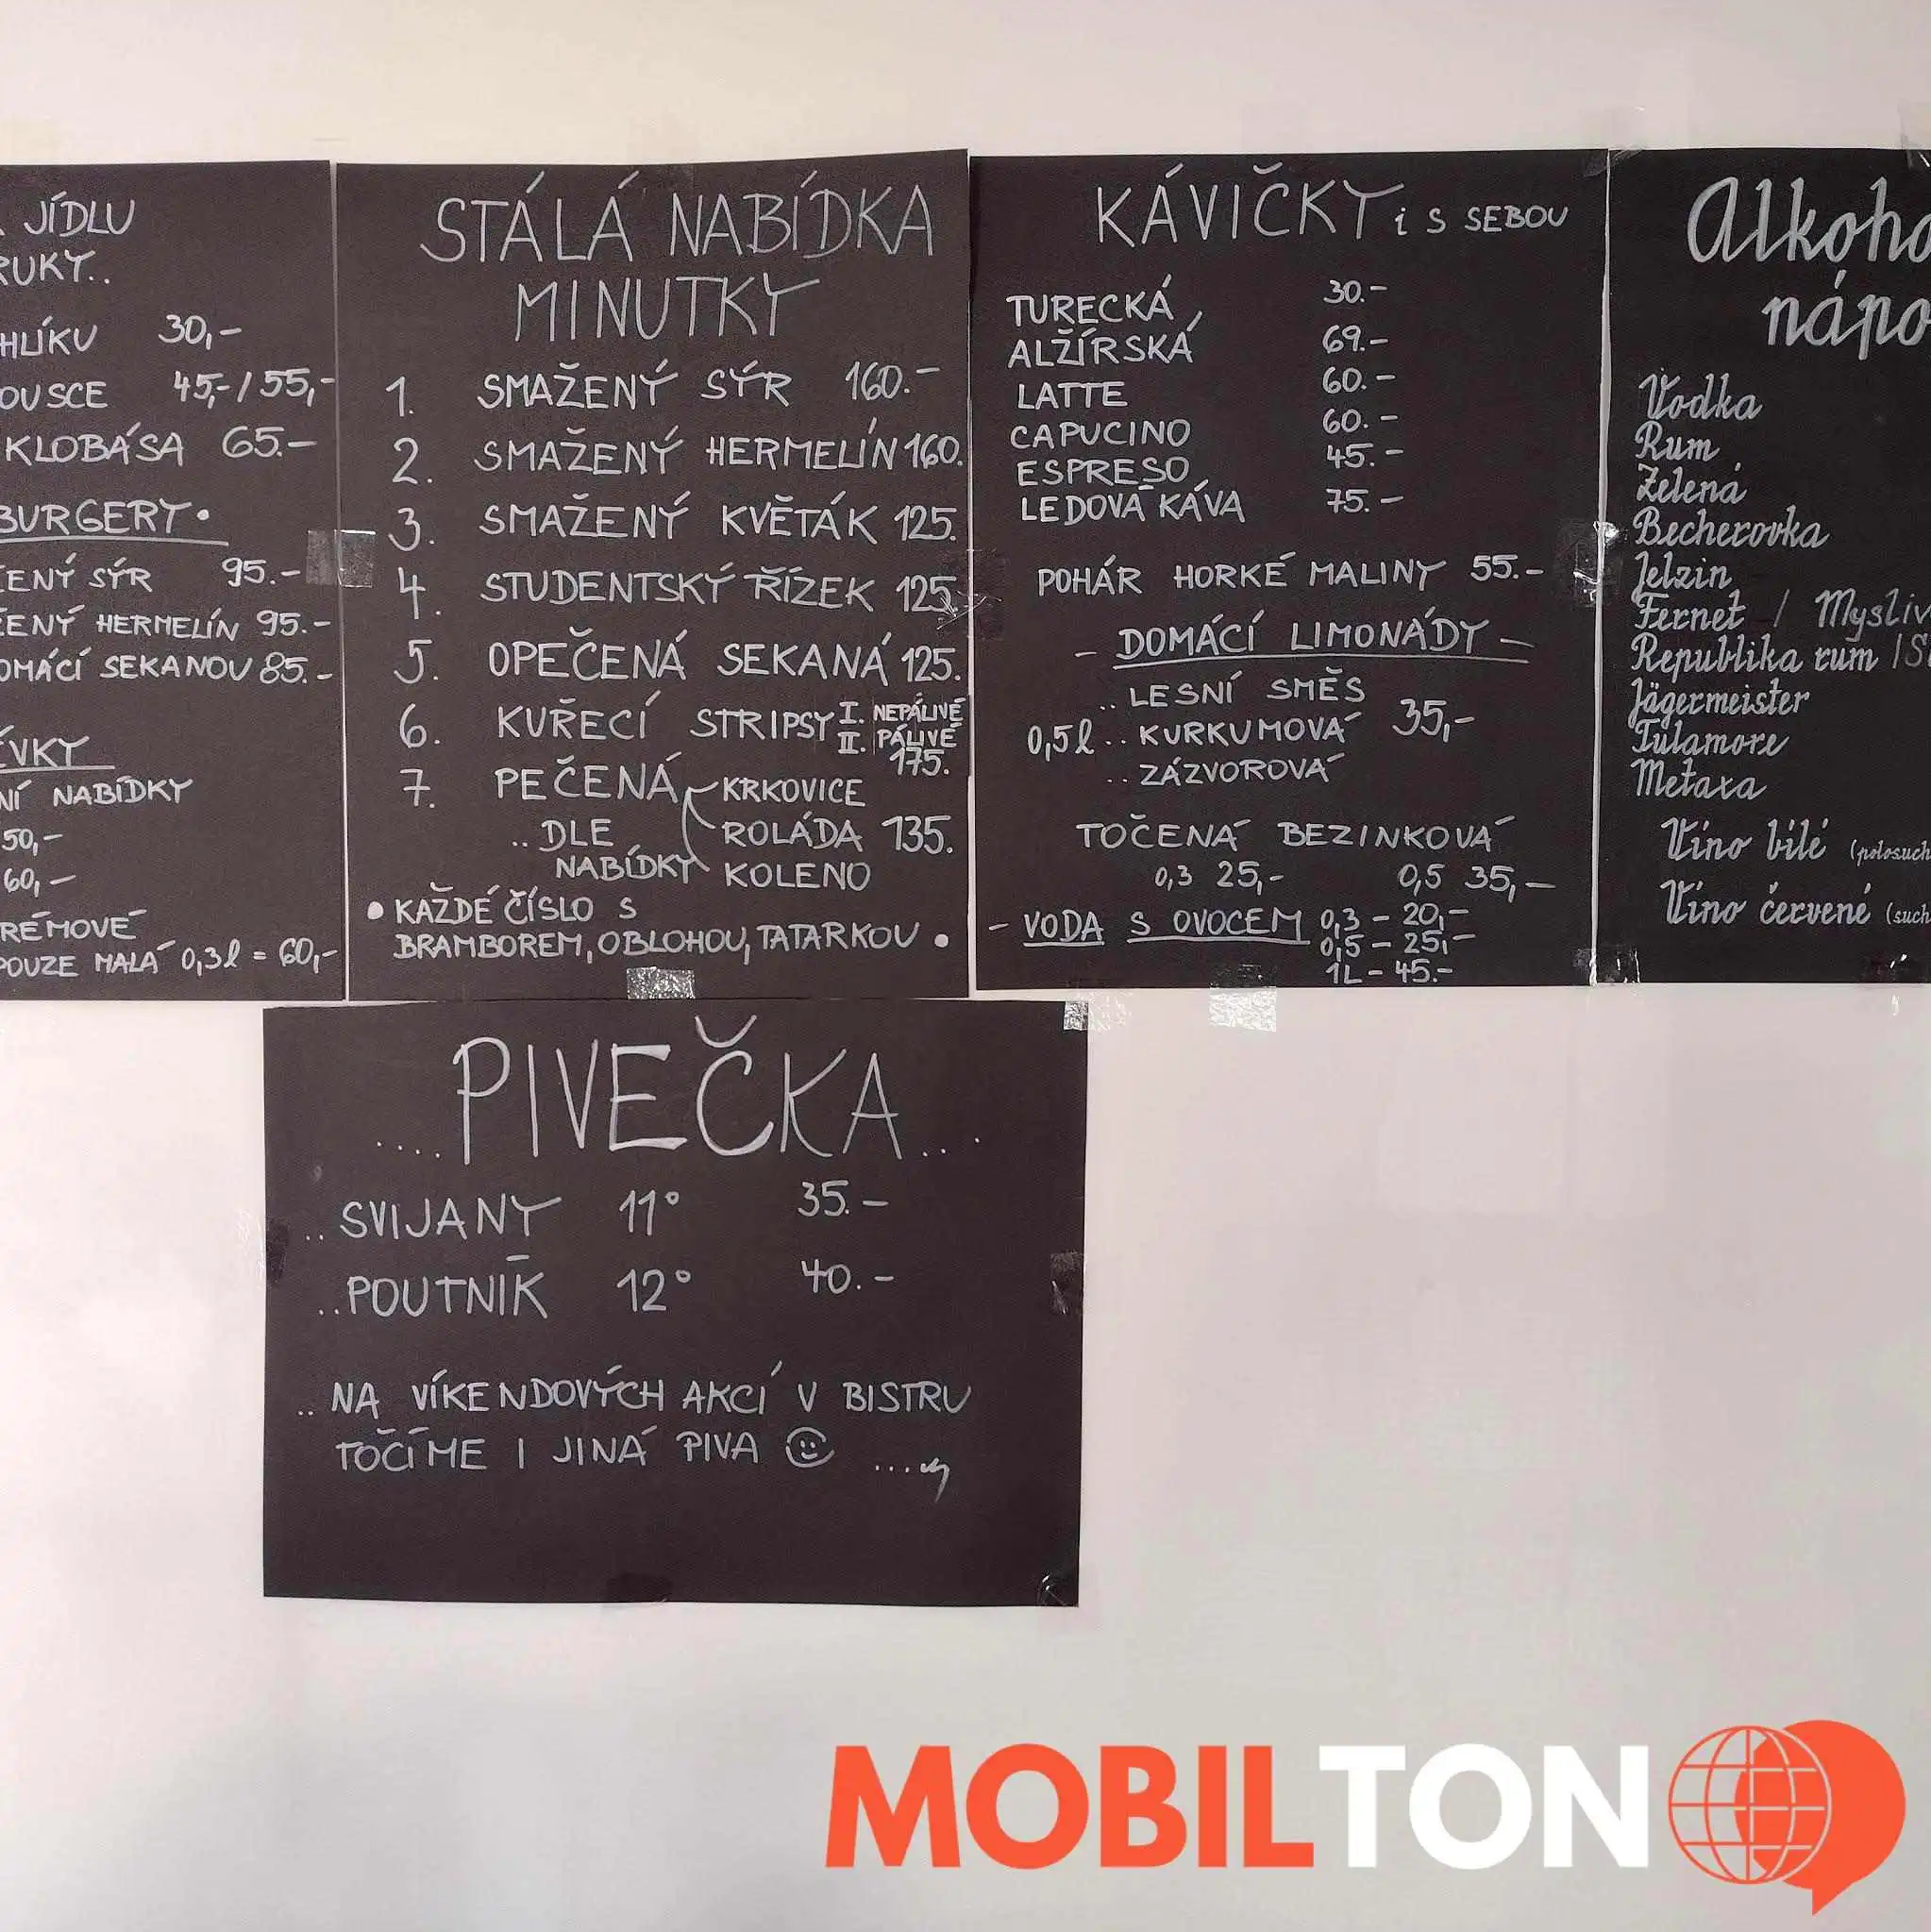 JÍDLU
30,-
45,- / 55,-
KLOBÁSA 65.-
BURGERY •
SÝR 95.-
HERMELÍN 95.-
SEKANOU 85.-
NABÍDKY
50,-
60,-
POUZE MALÁ 0,3l = 60,-
STÁLÁ NABÍDKA
MINUTKY
1. SMAŽENÝ SÝR 160.-
2. SMAŽENÝ HERMELÍN 160.
3. SMAŽENÝ KVĚTÁK 125.
4. STUDENTSKÝ ŘÍZEK 125.
5. OPEČENÁ SEKANÁ 125.
6. KUŘECÍ STRIPSY I. NEPÁLIVÉ
II. PÁLIVÉ
175.
7. PEČENÁ KRKOVICE
..DLE ROLÁDA 135.
NABÍDKY KOLENO
• KAŽDÉ ČÍSLO S
BRAMBOREM, OBLOHOU, TATARKOU •
KÁVIČKY i S SEBOU
TURECKÁ 30.-
ALŽÍRSKÁ 69.-
LATTE 60.-
CAPUCINO 60.-
ESPRESO 45.-
LEDOVÁ KÁVA 75.-
POHÁR HORKÉ MALINY 55.-
- DOMÁCÍ LIMONÁDY -
.. LESNÍ SMĚS
0,5l .. KURKUMOVÁ 35,-
.. ZÁZVOROVÁ
TOČENÁ BEZINKOVÁ
0,3 25,- 0,5 35,-
- VODA S OVOCEM 0,3 - 20,-
0,5 - 25,-
1L - 45.-
Vodka
Rum
Zelená
Becherovka
Jelzin
Fernet /
Republika rum /
Jägermeister
Tulamore
Metaxa
Víno bílé
Víno červené
....PIVEČKA...
..SVIJANY 11° 35.-
..POUTNÍK 12° 40.-
.. NA VÍKENDOVÝCH AKCÍ V BISTRU
TOČÍME I JINÁ PIVA ☺ ....
MOBILTON